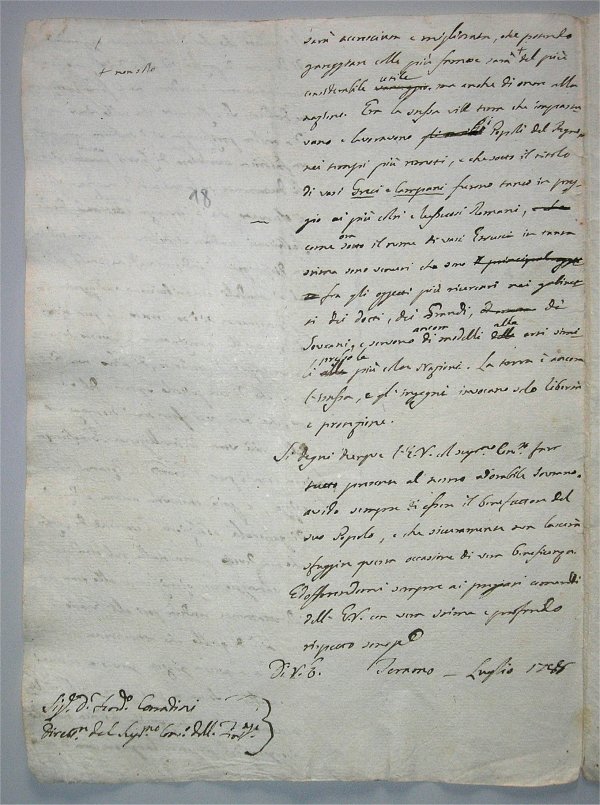 + non solo
18
sarà accresciuta e migliorata, che potendo
gareggiar colle più famose sarà + del più
considerabile vantaggio utile ma anche di onore alla
nazione. Era la stessa vill terra che impasta
vano e lavoravano Popoli del Regno
nei tempi più remoti, e che sotto il titolo
di vasi Greci e Campani furono tanto in pre
gio ai più colti e Romani,
come ora sotto il nome di vasi Etrusci in tanta
stima sono venuti che sono il principal ogget
to fra gli oggetti più ricercati nei gabinet
ti dei dotti, dei Grandi, de'
Sovrani, e servono ancora di modelli alle arti simi
li presso le alle più colte Nazioni. La terra è ancora
l'istessa, e gl'ingegni invocano solo libertà
e protezione.
Si degni dunque l'E.V. e il Supmo Conso far
tutto presente al nostro adorabile Sovrano,
avido sempre di essere il benefattore del
suo Popolo, e che sicuramente non lascerà
sfuggire questa occasione di vera beneficenza
Ed offerendomi sempre ai pregiati comandi
della E.V. con vera stima e profondo
rispetto
Di V. E. Teramo — Luglio 1788
Sigr. D. Ferdo Corradini
Direttre del Supmo Conso delle Finze